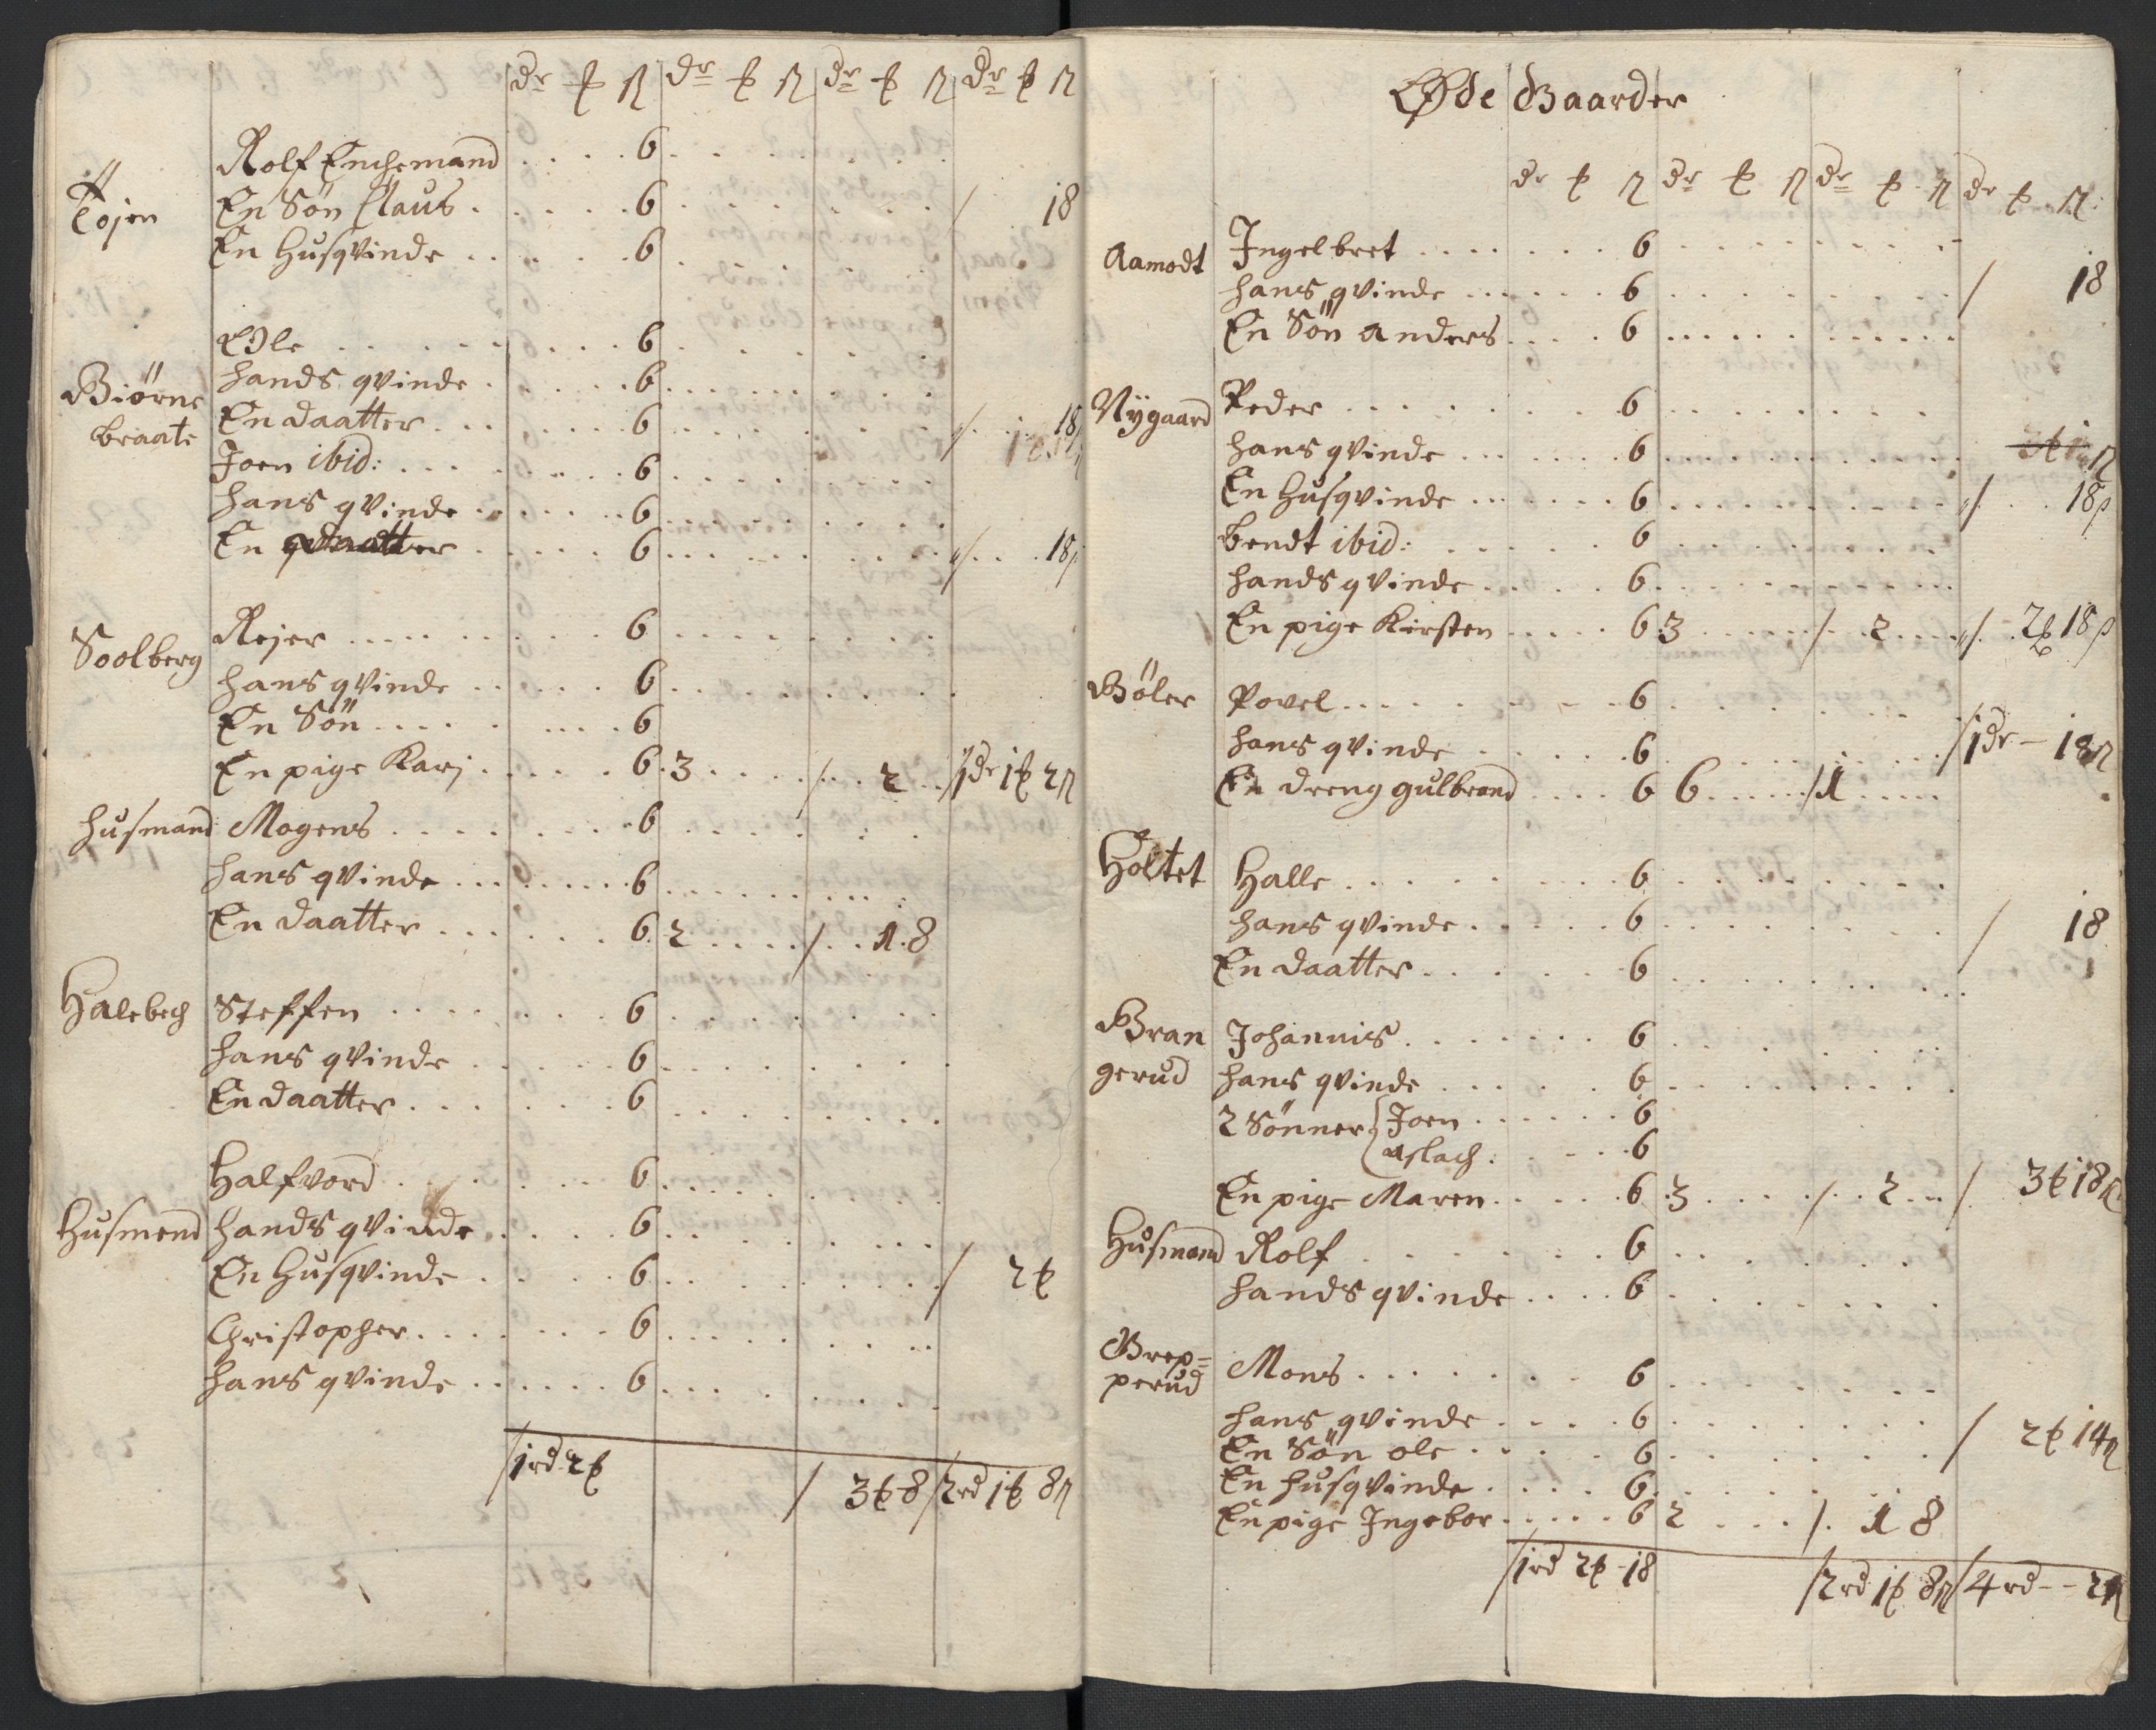 dr ƿ ß dr ƿ ß dr ƿ ß dr ƿ ß
Rolf Enchemand 6
Tojen En Søn Claus 6 / 18
En Husqvinde 6
Ole 6
Biørne hands qvinde 6
braate En daatter 6 /. 18ß
Joen ibid: 6
hans qvinde 6
En daatter 6 /. 18ß
Soolberg Rejer 6
hans qvinde 6
En Søn 6
En pige Karj 6 3 / 2 /1dr 1ƿ 2ß
husmand Mogens 6
hans qvinde 6
En daatter 6 2 / 1. 8
Halebech Steffen 6
hans qvinde 6
En daatter 6
Halfvord 6
Husmend hands qvinde 6
En Husqvinde 6 / 2ƿ
Christopher 6
hans qvinde 6
/1rd 2ƿ / 3ƿ 8 /2rd 1ƿ 8ß
Øde Gaarder
dr ƿ ß dr ƿ ß dr ƿ ß dr ƿ ß:
Aamodt Ingelbret 6
hans qvinde 6 / 18
En Søn anders 6
Nÿgaard Peder 6
hans qvinde 6
En Husqvinde 6 /. 18ß
bendt ibid: 6
hands qvinde 6
En pige Kirsten 6 3 /. 2 /. 2ƿ 18ß
Bøler Povel 6
hans qvinde 6 /1dr - 18ß
En dreng gulbrand 6 6 /1
Holtet Halle 6
hans qvinde 6 / 18
En daatter 6
Bran Johannis 6
gerud hans qvinde 6
2 Sønner Joen 6
aslach 6
En pige Maren 6 3 /. 2 / 3ƿ 18ß
Husmand Rolf 6
hands qvinde 6
Grep=
perud Mons 6
hans qvinde 6
En Søn ole 6 / 2ƿ 14ß
En husqvinde 6
En pige Ingebor 6 2 /. 1 8
/1rd 2ƿ - 18 /2rd 1ƿ 8ß /4rd - - 2ß